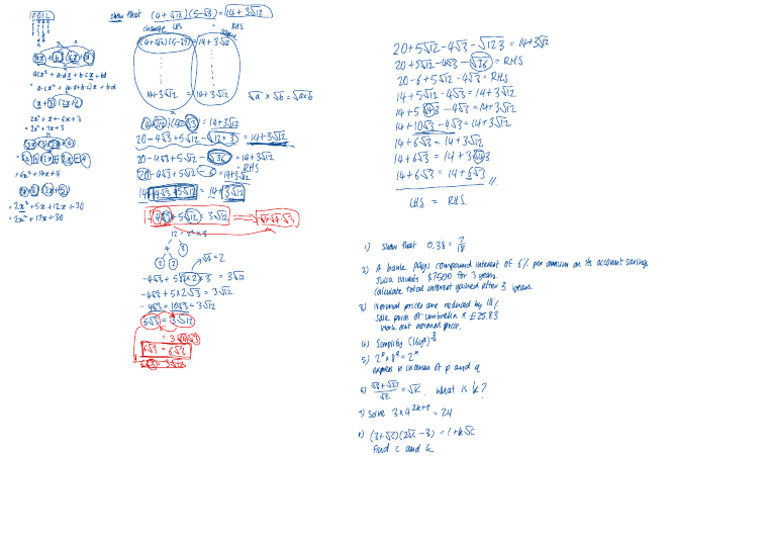 FOIL
show that (4+√12)(5-√3) = 14+3√12
change LHS = RHS
(4+√12)(5-√3) = 14+3√12
14+3√12 = 14+3√12
√a × √b = √a×b
acx² + adx + bcx + bd
(x+3)(2x+1)
2x² + x + 6x + 3
= 2x² + 7x + 3
= 6x² + 14x + 4
= 2x² + 5x + 12x + 30
= 2x² + 17x + 30
(4+√12)(5-√3) = 14+3√12
20 - 4√3 + 5√12 - √12×3 = 14+3√12
20 - 4√3 + 5√12 - √36 = 14+3√12
20 - 4√3 + 5√12 - 6 = 14+3√12
RHS
14 - 4√3 + 5√12 = 14+3√12
-4√3 + 5√12 = 3√12
12 = 2² × 3
√4 = 2
-4√3 + 5√2×2×3 = 3√12
-4√3 + 5×2√3 = 3√12
-4√3 + 10√3 = 3√12
6√3 = 3√12
= 3√4√3
6√3 = 6√3
6√3 = 3√12
20+5√12-4√3-√12 3 = 14+3√12
20+5√12-4√3-√36 = RHS
20-6+5√12-4√3 = RHS
14+5√12-4√3 = 14+3√12
14+5√4√3-4√3 = 14+3√12
14+10√3-4√3 = 14+3√12
14+6√3 = 14+3√12
14+6√3 = 14+3√4√3
14+6√3 = 14+6√3
LHS = RHS
1) Show that 0.38 = 7/18
2) A bank pays compound interest of 5% per annum on its account savings
Julia invests $7500 for 3 years.
Calculate total interest gained after 3 years.
3) Normal prices are reduced by 18%
Sale price of umbrella is £25.83
Work out normal price.
4) Simplify
5) 2^p × 8^q = 2^n
express n in terms of p and q
6) = √k. What is k?
7) Solve 3×4^(2k+8) = 24
8) (3+√c)(2√c-3) = 1+k√c
Find c and k